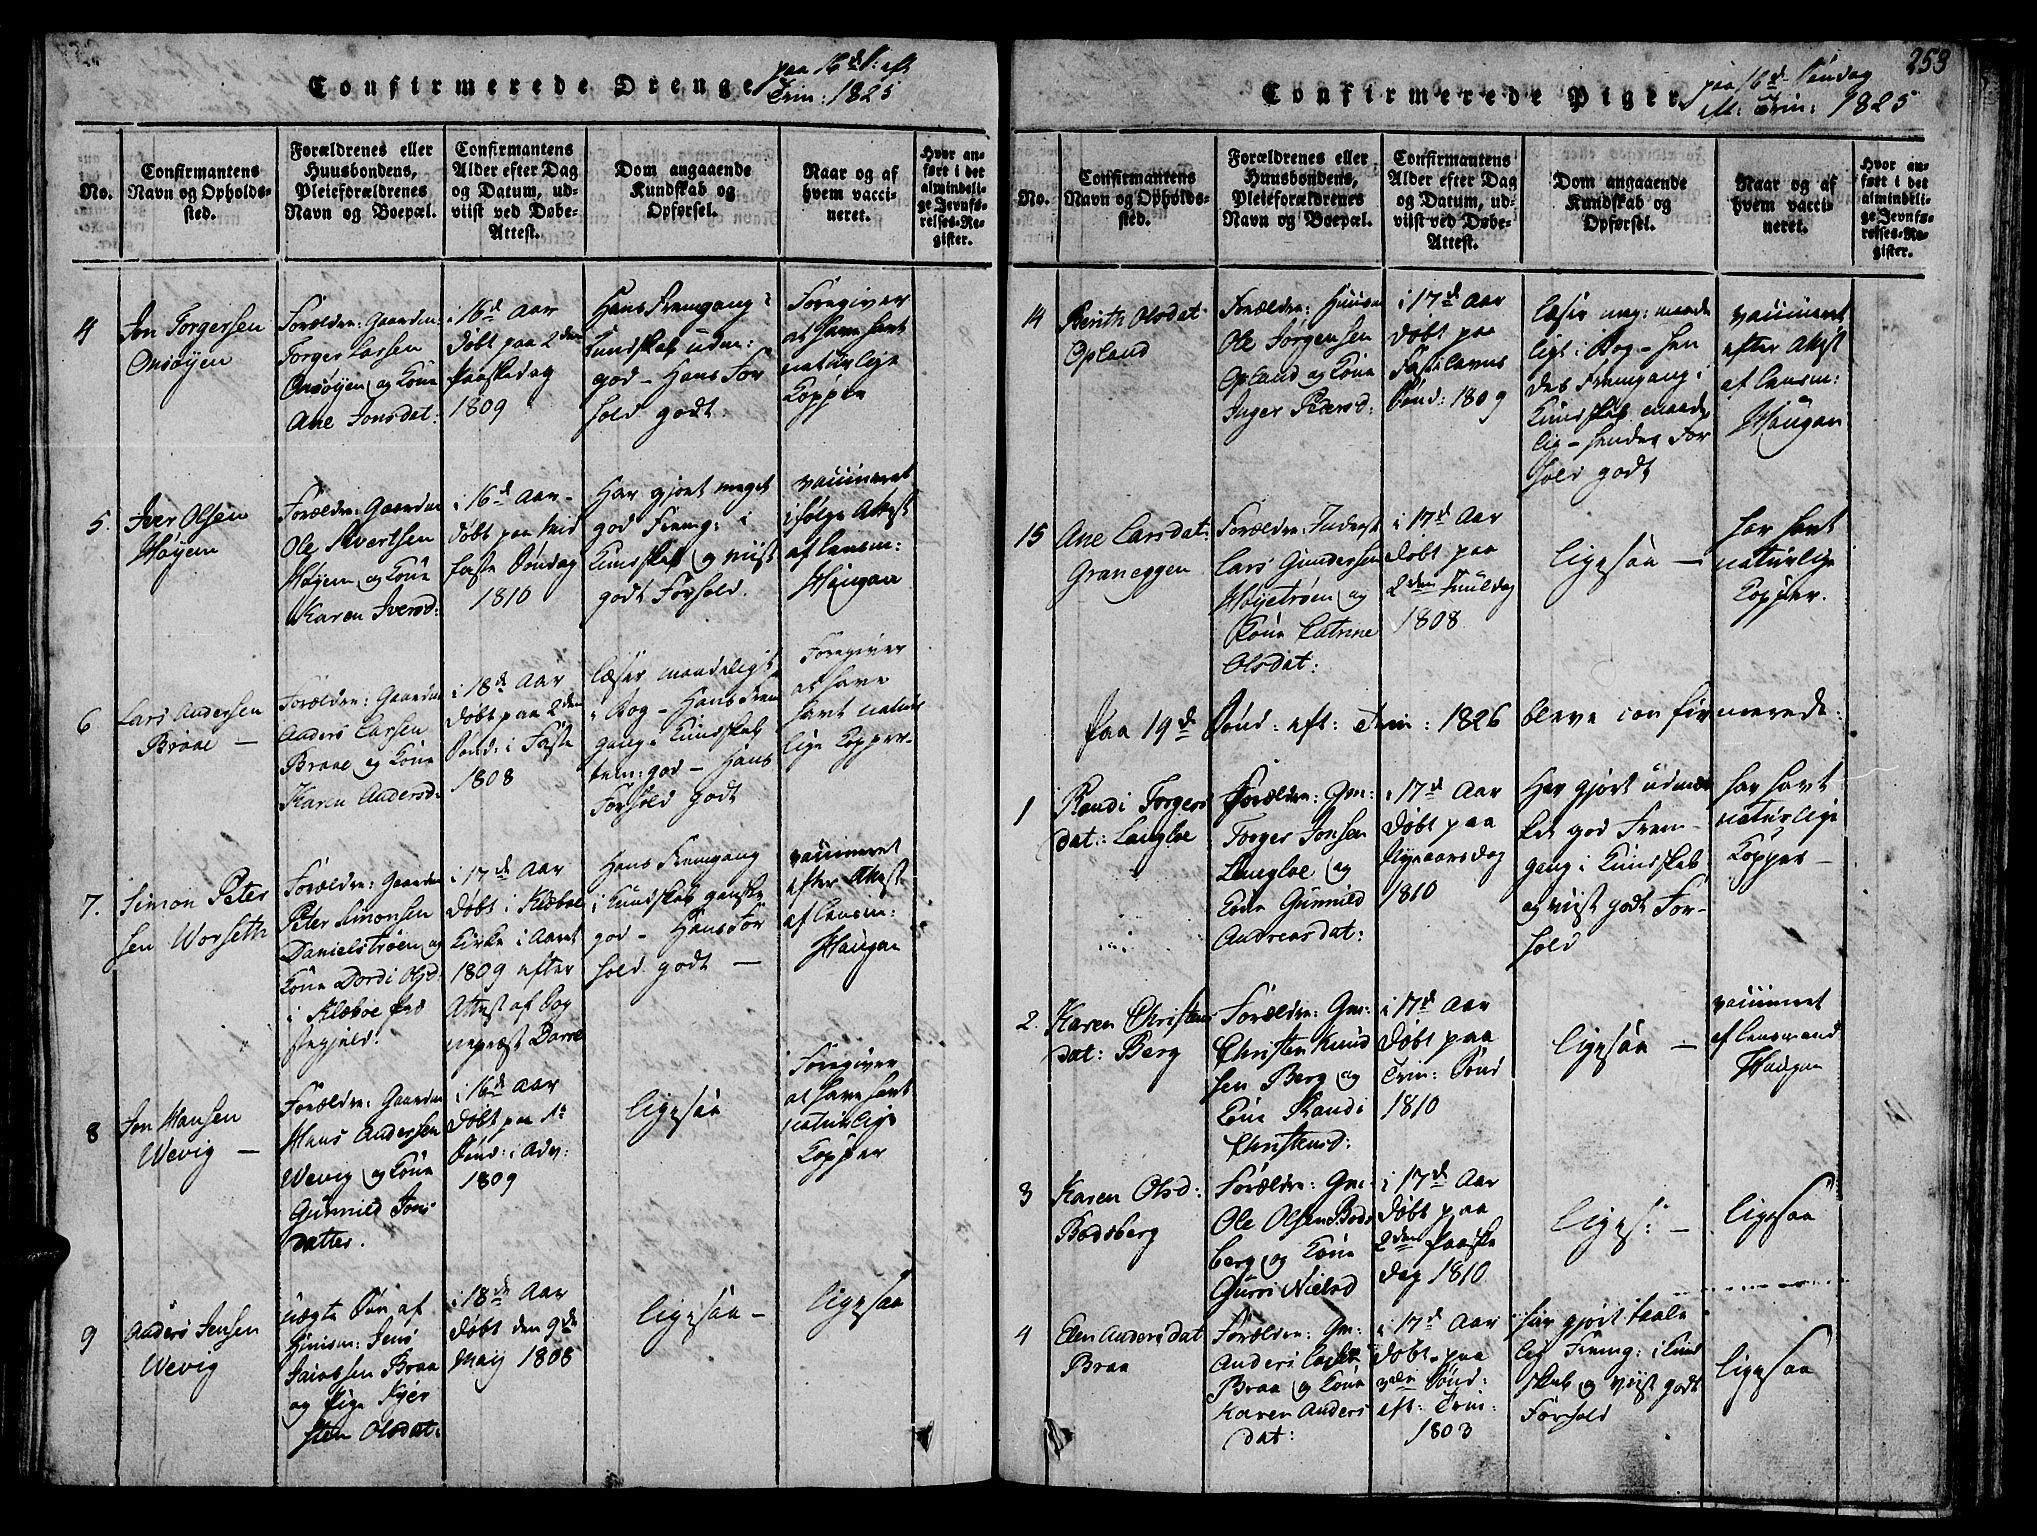 Confirmerede Drenge paa 16d S: eft
Trin: 1825
No.
Confirmantens
Navn og Opholds-
sted.
Forældrenes eller
Huusbondens,
Pleieforældrenes
Navn og Boepæl.
Confirmantens
Alder efter Dag
og Datum, ud-
viist ved Døbe-
Attest.
Dom angaaende
Kundskab og
Opførsel.
Naar og af
hvem vacci-
neret.
Hvor an-
ført i det
almindeli-
ge Jevnfø-
relses-Re-
gister.
4
Jon Torgersen
Onsöyen
Forældre: Gaardm:
Torger Larsen
Onsöyen og Kone
Ane Jonsdat:
i 16d Aar
döbt paa 2den
Paaskedag
1809
Hans Fremgang i
Kundskab udm:
god – Hans For
hold godt.
Foregiver
at have havt
naturlige
Kopper
5.
Iver Olsen
Höyem
Forældre: Gaardm
Ole Sivertsen
Höyem og Kone
Karen Iversd:
i 16d Aar –
döbt paa Mid
faste Söndag
1810
Har gjort meget
god Fremg: i
Kundskab og viist
godt Forhold.
vaccineret
ifølge Attest
af Lensm:
Haugan
6
Lars Andersen
Braae –
Forældre: Gaardm
Anders Larsen
Braae og Kone
Karen Andersd:
i 18d Aar
döbt paa 2den
Sönd: i Faste
1808
læser maadeligt
i Bog – Hans Frem
gang i Kundskab
tem: god – Hans
Forhold godt
Foregiver
at have
havt natur
lige Kopper –
7.
Simon Peter
sen Worseth
Forældre: Gaardm
Peter Simonsen
Danielströen og
Kone Dordi Olsd:
i Klæboe Præ
stegjeld.
i 17d Aar
döbt i Klæboe
Kirke i Aaret
1809 efter
Attest af Sog
nepræst Darre
Hans Fremgang
i Kundskab ganske
god – Hans For
hold godt –
vaccineret
efter Attest
af Lensm:
Haugan
8
Jon Hansen
Wevig –
Forældre: Gaardm
Hans Andersen
Wevig og Kone
Gunnild Jons
datter.
i 16d Aar
döbt paa 1ste
Sönd: i Adv:
1809
ligesaa
Foregiver
at have havt
naturlige
Kopper
9
Anders Jensen
Wevig
uægte Sön af
Huusm: Jens
Jacobsen Braa
og Pige Kjer
sten Olsdat:
i 18d Aar
döbt den 9de
May 1808
ligesaa –
ligesaa
253
Confirmerede Piger paa 16d Söndag
eft: Trin: 1825
No.
Confirmantens
Navn og Opholds-
sted.
Forældrenes eller
Huusbondens,
Pleieforældrenes
Navn og Boepæl.
Confirmantens
Alder efter Dag
og Datum, ud-
viist ved Døbe-
Attest.
Dom angaaende
Kundskab og
Opførsel.
Naar og af
hvem vacci-
neret.
Hvor an-
ført i det
almindeli-
ge Jevnfø-
relses-Re-
gister.
14
Berith Olsdat:
Opland
Forældre: Huusm
Ole Jörgensen
Opland og Kone
Inger Petersd:
i 17d Aar
döbt paa
Fastelavns
Sönd: 1809
læser meg: maade
ligt i Bog – Hen
des Fremgang i
Kundskab maade
lig – hendes For
hold godt
vaccineret
efter Attest
af Lensm:
Haugan
15
Ane Larsdat:
Graneggen
Forældre: Inderst
Lars Gundersen
Höyeströen og
Kone Catrine
Olsdat:
i 17d Aar
döbt paa
2den Juuldag
1808
ligesaa –
har havt
naturlige
Kopper.
Paa 19d Sönd: eft: Trin: 1826 bleve confirmerede:
1
Randi Torgers
dat: Langloe
Forældre: Gm:
Torger Jonsen
Langloe og
Kone Gunnild
Andreasdat:
i 17d Aar
döbt paa
Nytaarsdag
1810
Har gjort udmær
ket god Frem –
gang i Kundskab
og viist godt For-
hold
har havt
naturlige
Kopper –
2.
Karen Christens
dat: Berg
Forældre: Gm:
Christen Knud
sen Berg og
Kone Randi
Christensd:
i 17d Aar
döbt paa
Trin: Sönd
1810
ligesaa –
vaccineret
af Lensmand
Haugan
3
Karen Olsd:
Bodsberg
Forældre: Gm:
Ole Olsen Bods
berg og Kone
Gurri Nielsd
i 17d Aar
döbt paa
2den Paaske
dag 1810
liges: –
ligesaa
4
Elen Andersdat
Braa
Forældre: Gm:
Anders Larsen
Braa og Kone
Karen Anders
dat:
i 17d Aar
döbt paa
3die Sönd:
eft: Trin:
1803
har gjort taale
lig Fremg: i Kund
skab og viist godt
Forhold
ligesaa